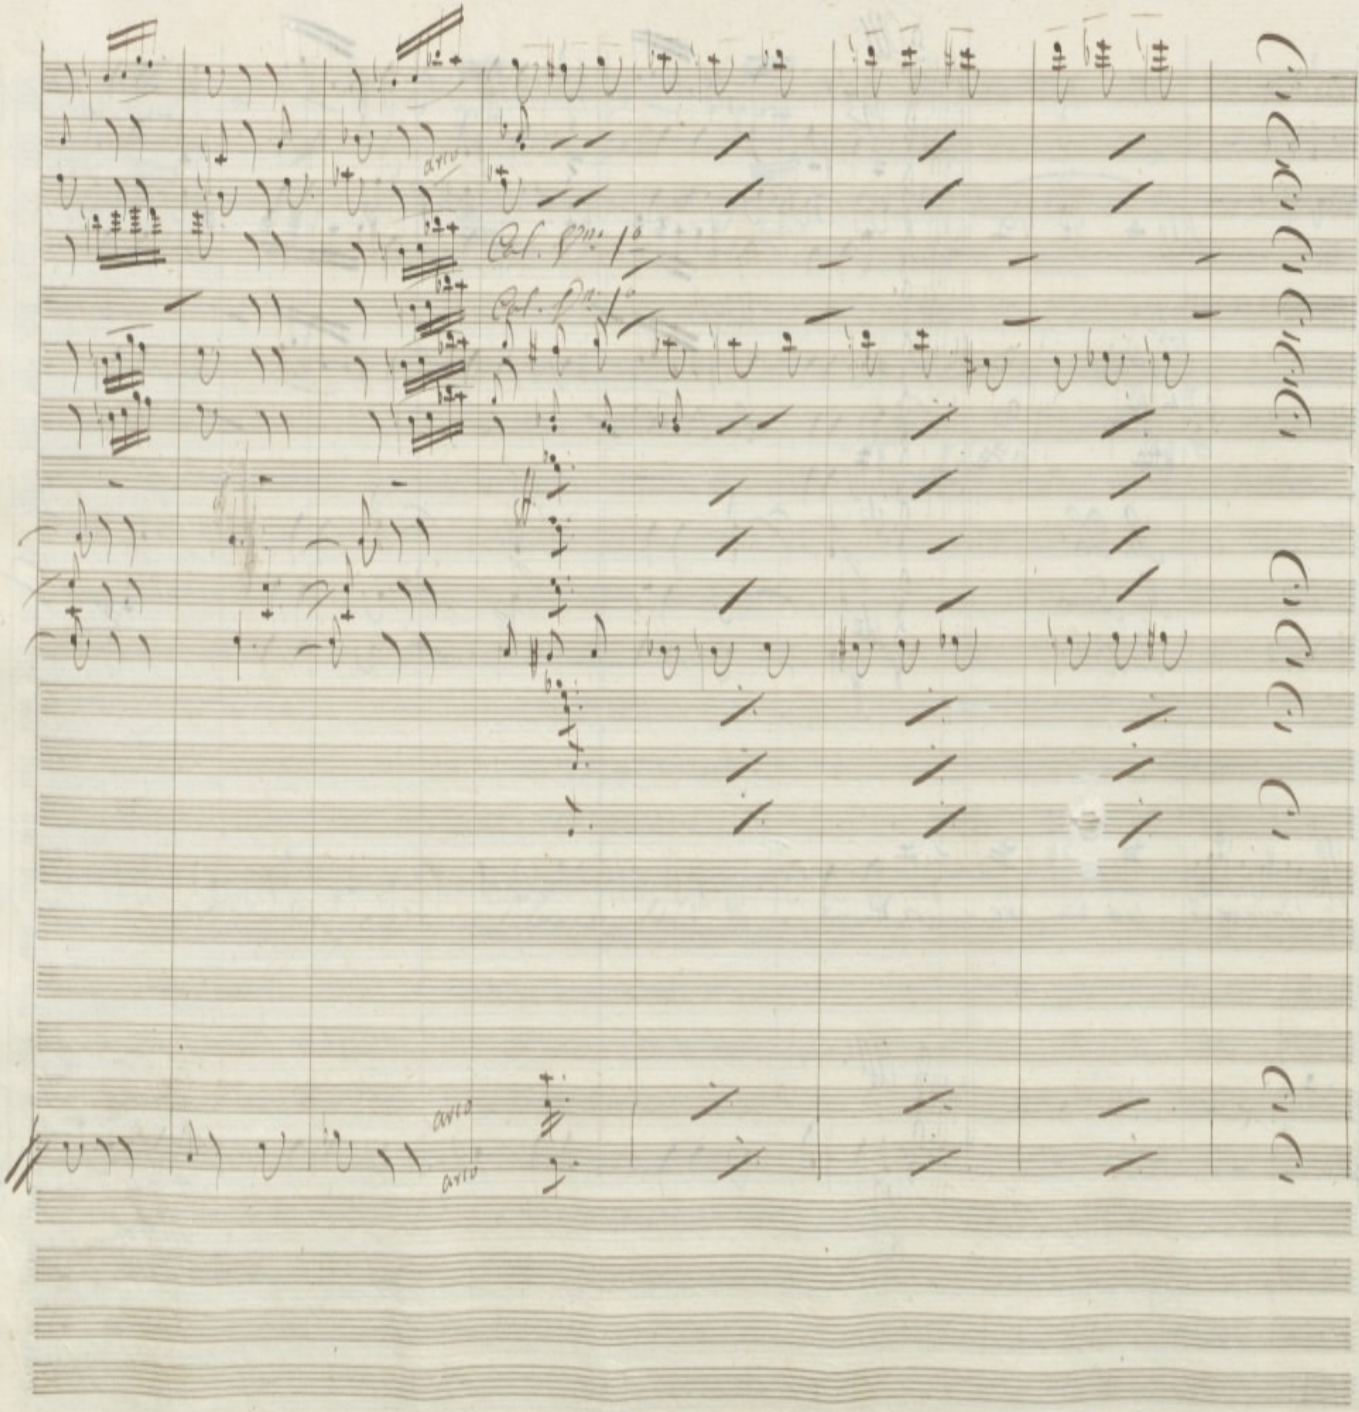 arco
Col. Vno. 1o
Col. Vno. 1o
ff
arco
arco